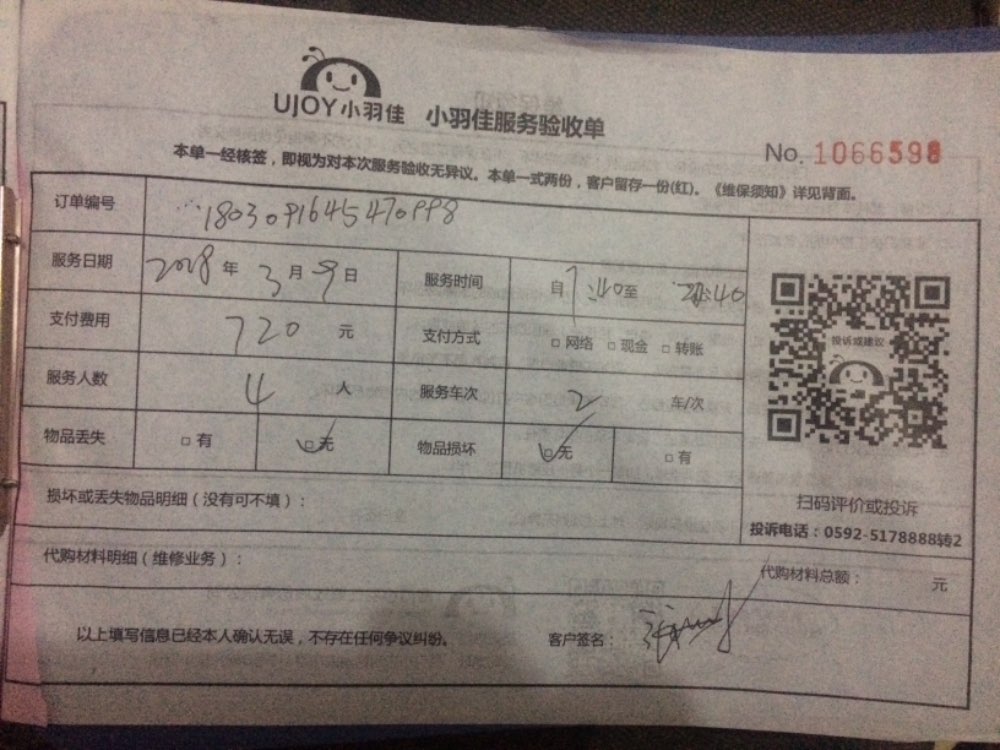 UJOY小羽佳 小羽佳服务验收单
No. 1066598
本单一经核签，即视为对本次服务验收无异议。本单一式两份，客户留存一份(红)。《维保须知》详见背面。
订单编号 1803091645470998
服务日期 2018年3月9日 服务时间 自 :40至 :40
支付费用 720 元 支付方式 □网络 □现金 □转账
投诉或建议
服务人数 4 人 服务车次 2 车/次
物品丢失 □有 □无 物品损坏 □无 □有
损坏或丢失物品明细（没有可不填）：
扫码评价或投诉
投诉电话：0592-5178888转2
代购材料明细（维修业务）： 代购材料总额： 元
以上填写信息已经本人确认无误，不存在任何争议纠纷。 客户签名：